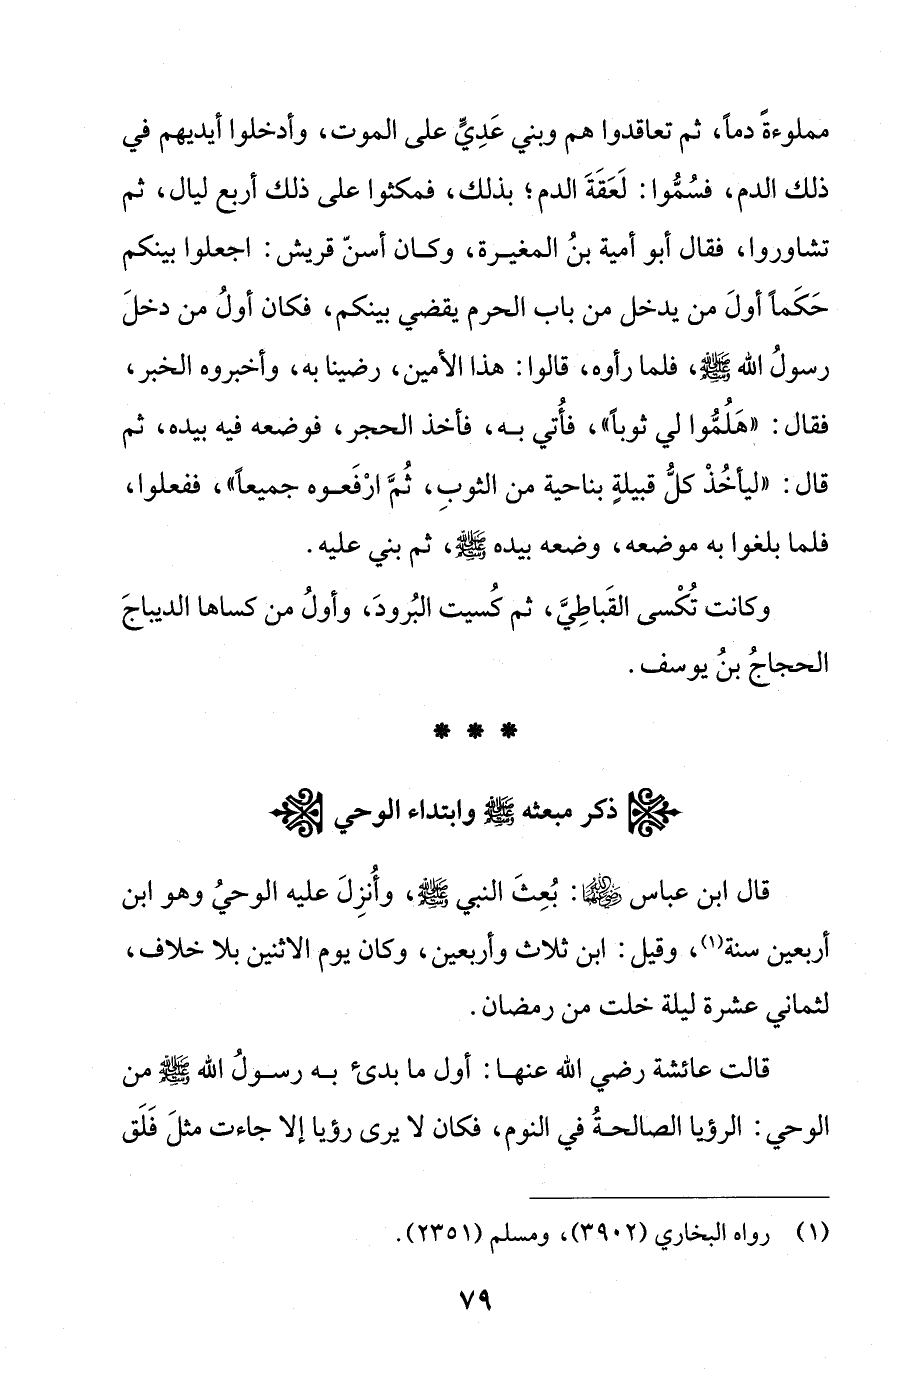 مملوءةً دماً، ثم تعاقدوا هم وبني عَدِيٍّ على الموت، وأدخلوا أيديهم في
ذلك الدم، فسُمُّوا: لَعَقَةَ الدم؛ بذلك، فمكثوا على ذلك أربع ليال، ثم
تشاوروا، فقال أبو أمية بنُ المغيرة، وكان أسنّ قريش: اجعلوا بينكم
حَكَماً أولَ من يدخل من باب الحرم يقضي بينكم، فكان أولُ من دخلَ
رسولُ الله ﷺ، فلما رأوه، قالوا: هذا الأمين، رضينا به، وأخبروه الخبر،
فقال: «هَلُمُّوا لي ثوباً»، فأُتي به، فأخذ الحجر، فوضعه فيه بيده، ثم
قال: «ليأخُذْ كلُّ قبيلةٍ بناحية من الثوبِ، ثُمَّ ارْفَعوه جميعاً»، ففعلوا،
فلما بلغوا به موضعه، وضعه بيده ﷺ، ثم بني عليه.
وكانت تُكْسى القَباطِيَّ، ثم كُسيت البُرودَ، وأولُ من كساها الديباجَ
الحجاجُ بنُ يوسف.
* * *
ذكر مبعثه ﷺ وابتداء الوحي
قال ابن عباس رضي الله عنهما: بُعِثَ النبي ﷺ، وأُنزِلَ عليه الوحيُ وهو ابن
أربعين سنة(١)، وقيل: ابن ثلاث وأربعين، وكان يوم الاثنين بلا خلاف،
لثماني عشرة ليلة خلت من رمضان.
قالت عائشة رضي الله عنها: أول ما بدئ به رسولُ الله ﷺ من
الوحي: الرؤيا الصالحةُ في النوم، فكان لا يرى رؤيا إلا جاءت مثلَ فَلَق
(١) رواه البخاري (٣٩٠٢)، ومسلم (٢٣٥١).
٧٩